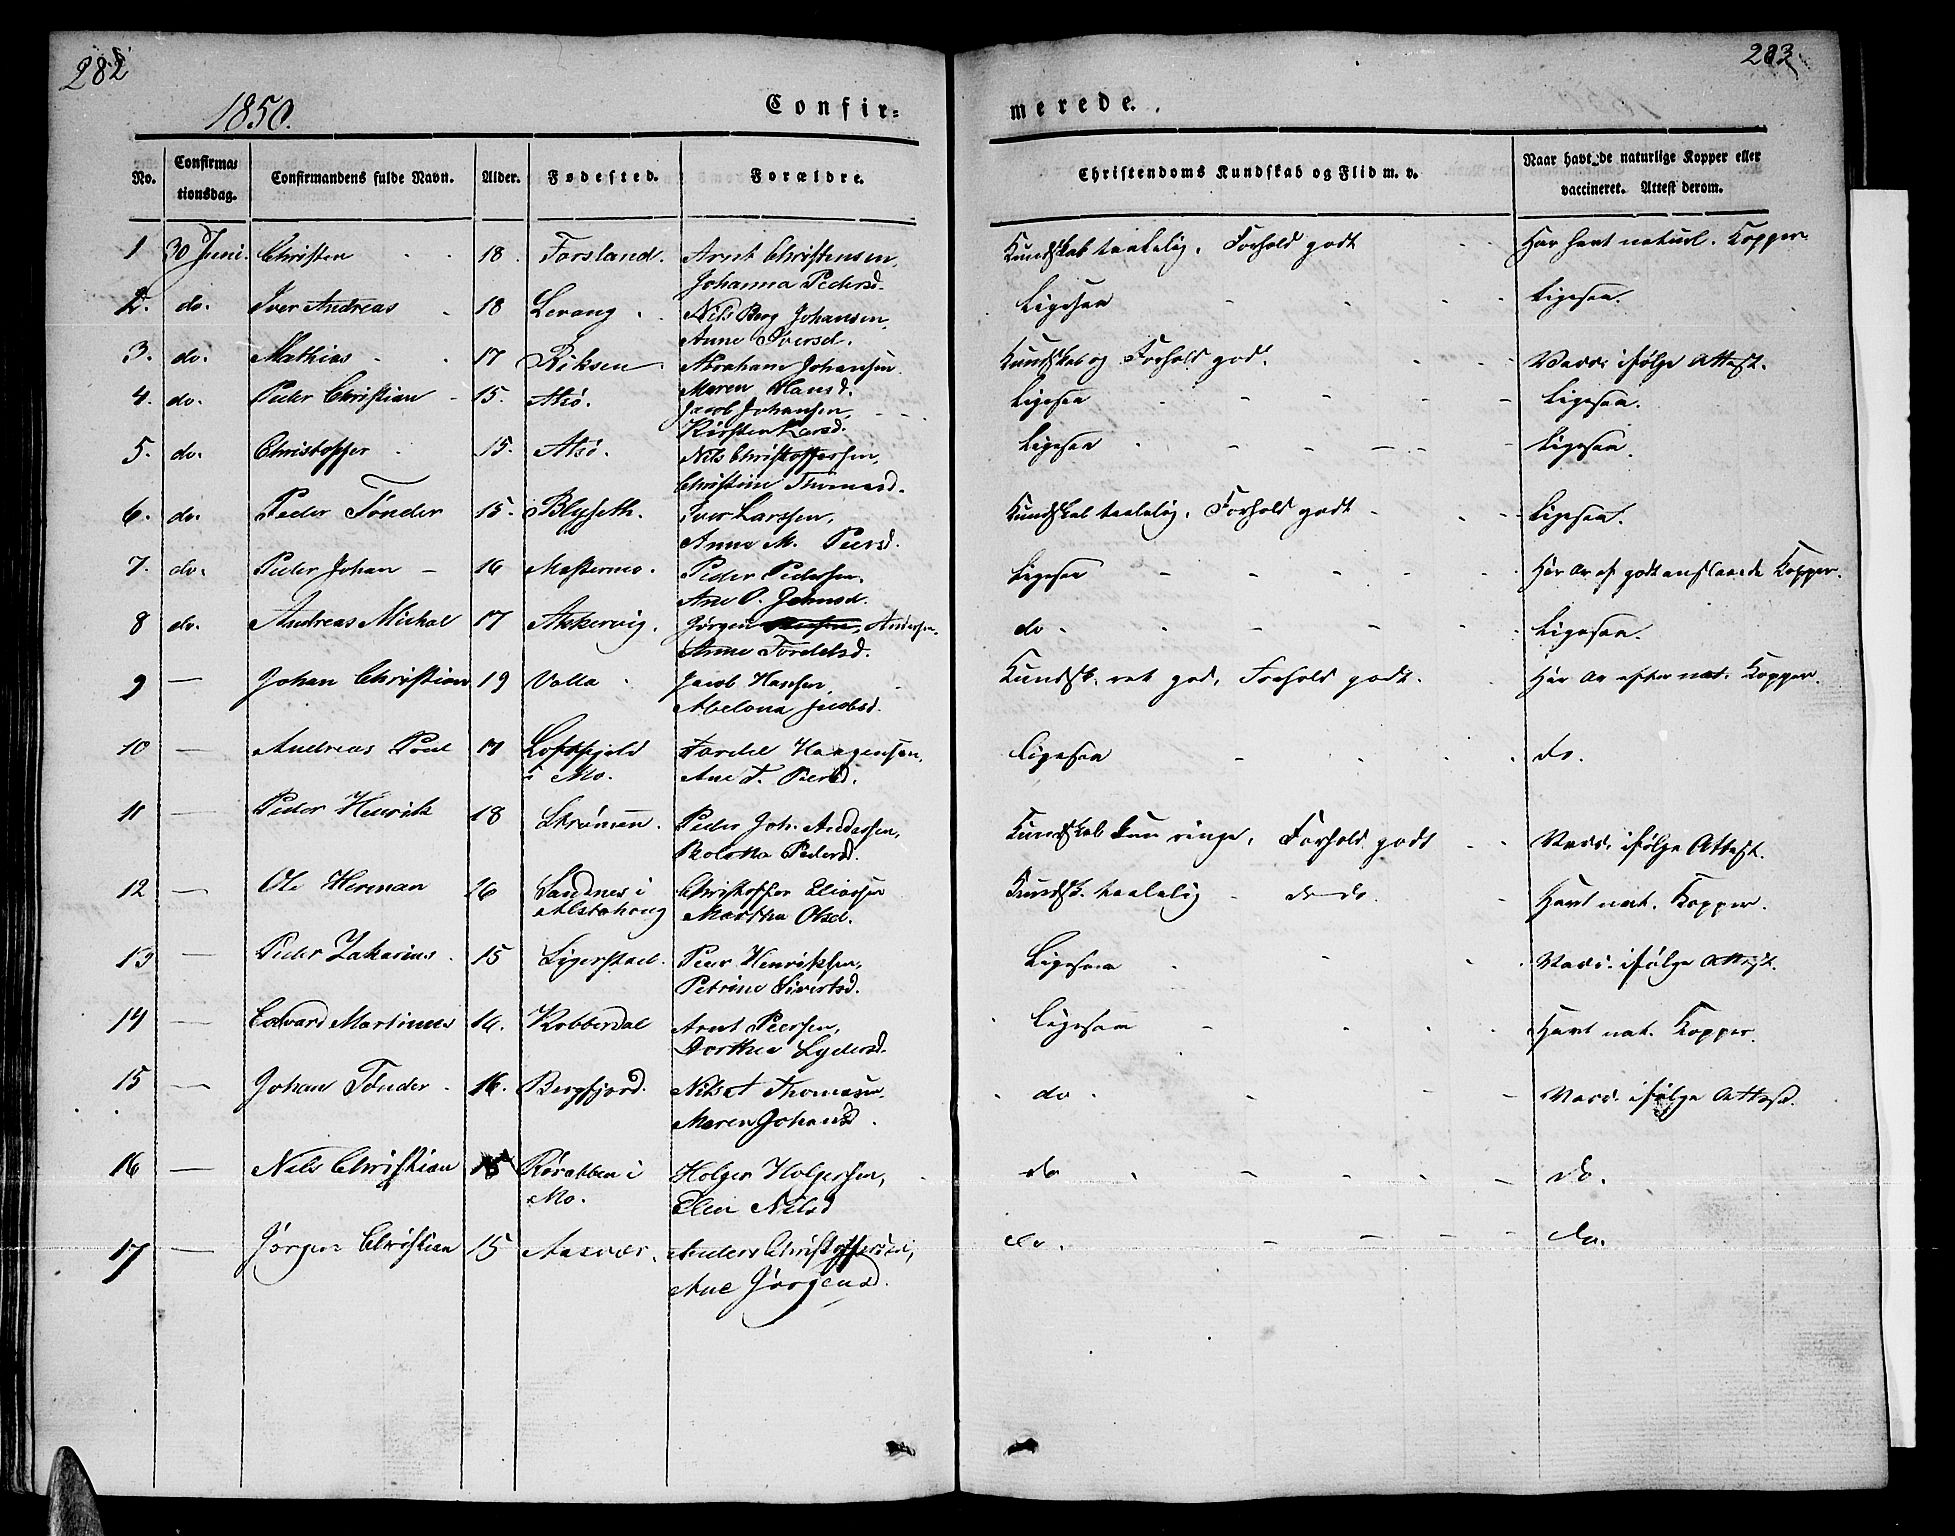 282
283
1850.
Confir=
merede.
No.
Confirma=
tionsdag.
Confirmandens fulde Navn.
Alder.
Fødested.
Forældre.
Christendoms Kundskab og Flid m. v.
Naar havt de naturlige Kopper eller
vaccineret. Attest derom.
1 30 Juni. Christen 18. Forsland. Arnt Christensen, Kundskab taalelig. Forhold godt Har havt naturl. Kopper.
Johanna Pedersd.
2. do. Iver Andreas 18 Levang. Nils Berg Johansen, Ligesaa Ligesaa.
Anne Iversd.
3. do. Mathias 17 Riksen Abraham Johansen. Kundskab og Forhold god. Vacc. ifølge Attest.
Maren Hansd.
4. do. Peder Christian 15. Alsø. Jacob Johansen, Ligesaa Ligesaa.
Kirsten Larsd.
5. do. Christopher 15. Alsø. Nils Christoffersen, Ligesaa Ligesaa.
Christine Thomasd.
6. do. Peder Tønder 15. Blyseth. Iver Larssen, Kundskab taalelig. Forhold godt Ligesaa.
Anne M. Peersd.
7. do. Peder Johan 16 Mastermo. Peder Pedersen. Ligesaa Har Ar af godt anslaaede Kopper.
Ane P. Johnsd.
8 do. Andreas Michal 17 Akkervig. Jørgen Andersen. do Ligesaa.
Anne Tordelsd.
9 — Johan Christian 19 Valla Jacob Hansen, Kundsk. ret god, Forhold godt. Har Ar efter nat. Kopper.
Abelona Jacobsd.
10 — Andreas Poul 17 Loftfjeld Tordel Haagensen, Ligesaa do.
i Mo. Ane T. Peersd.
11 — Peder Henrik 18 Skrømen. Peder Joh. Andersen, Kundskab kun ringe, Forhold godt Vacc. ifølge Attest.
Peder​sd.
12 — Ole Herman 16 Sandnes i Christopher Eliassen Kundsk. taalelig do do. Havt nat. Kopper.
Alstahoug Martha Olsd.
13 — Peder Zakarias 15 Ligerstad. Peer Henriksen, Ligesaa Vacc. ifølge Attest.
Petrine Sivertsd.
14 — Edvard Martinus 16. Kobberdal Arnt Peersen, Ligesaa Havt nat. Kopper.
Dorthea Lydersd.
15 — Johan Tønder 16. Bergfjord. Nils At Thomasen, do Vacc. ifølge Attest.
Maren Johansd.
16 — Nils Christian 15 i Holger Holgersen, do do.
Mo. Elen Nilsd
17 — Jørgen Christian 15 Aasvær. Anders Christoffersen, do. do.
Ane Jørgensd.